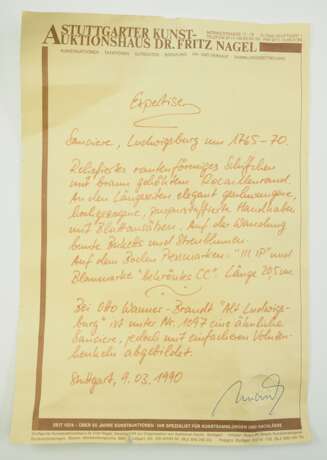 STUTTGARTER KUNST-
AUKTIONSHAUS DR. FRITZ NAGEL
Expertise
Sauciere, Ludwigsburg um 1765-70.
Reliefiertes rautenförmiges Schiffchen
mit braun gehöhtem Rocaillenrand.
An den Längsseiten elegant geschwungene,
hochgezogene, purpurstaffierte Handhaben
mit Blattansätzen. Auf der Wandung
bunte Buketts und Streublumen.
Auf dem Boden Pressmarken: "III IP" und
Blaumarke "bekröntes CC". Länge 20,5 cm.
Bei Otto Wanner-Brandt "Alt Ludwigs-
burg" ist unter Nr. 1097 eine ähnliche
Sauciere, jedoch mit einfacheren Voluten-
henkeln abgebildet.
Stuttgart, 9.03.1990